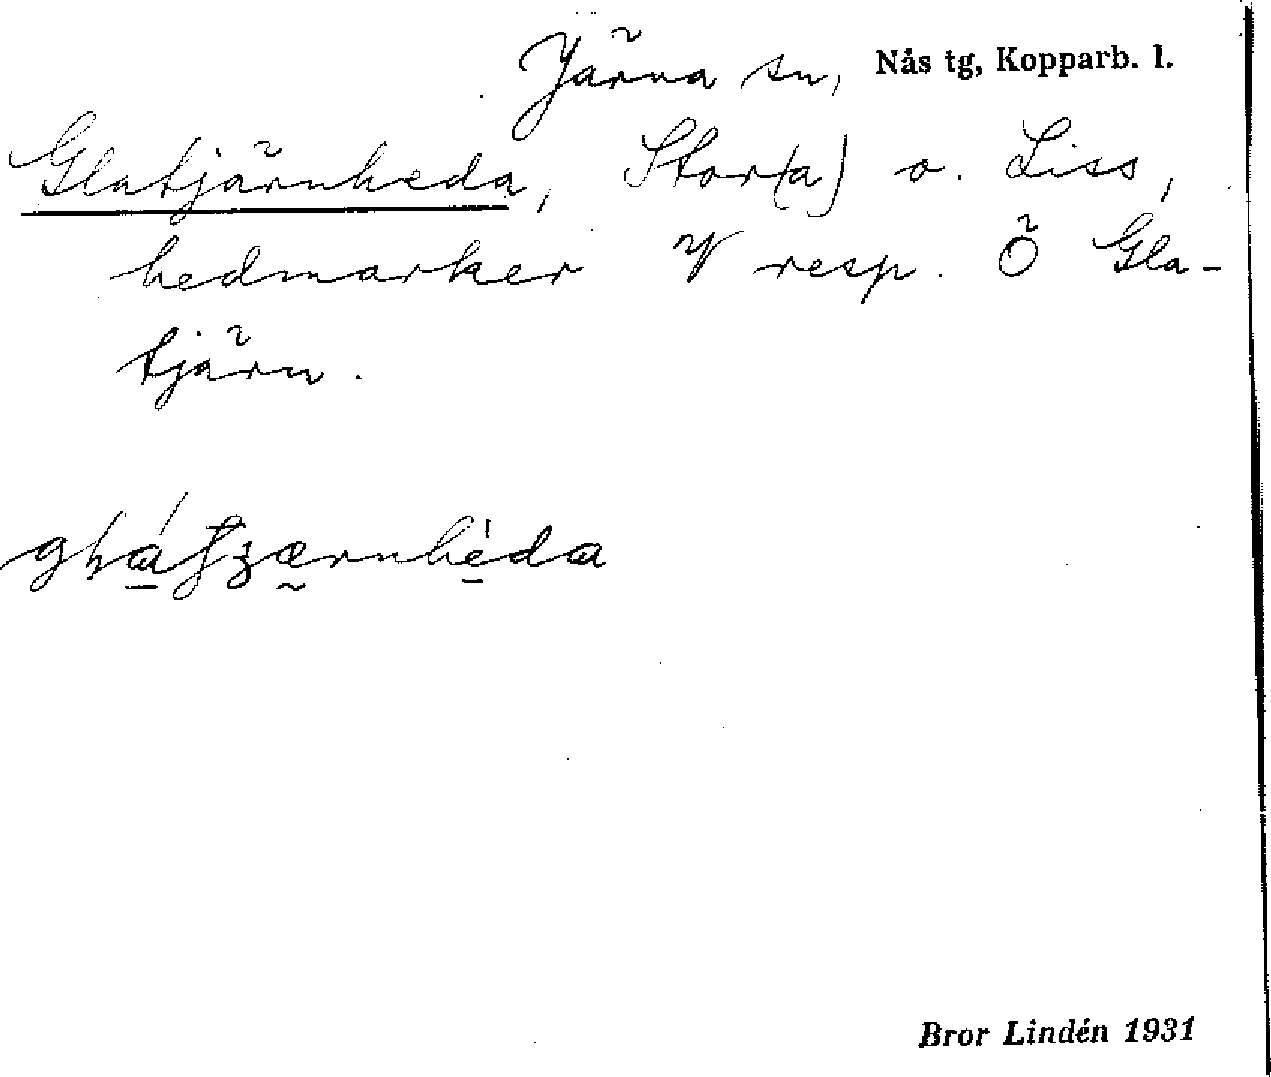 Järna sn, Nås tg, Kopparb. l.
Glatjärnheda, Stor(a) o. Liss,
hedmarker V resp. Ö Gla-
tjärn.
Bror Lindén 1931